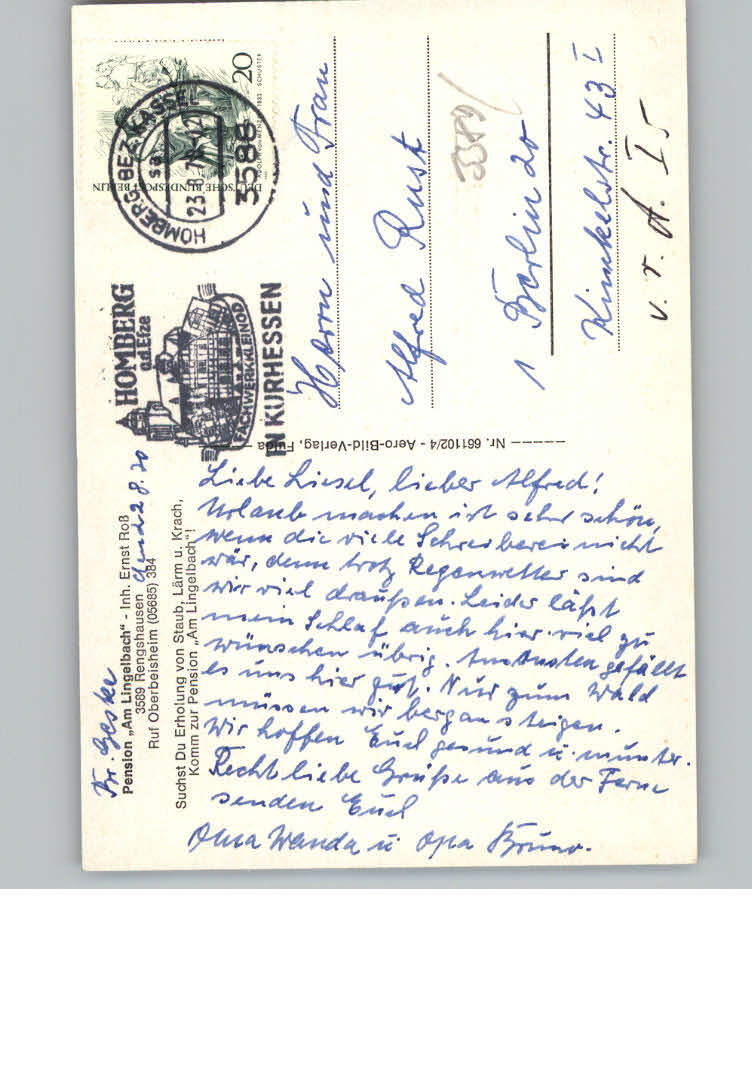 Br. Geske
Pension „Am Lingelbach“ - Inh. Ernst Roß
3589 Rengshausen den 22.8.70
Ruf Oberbeisheim (05685) 384
Suchst Du Erholung von Staub, Lärm u. Krach,
Komm zur Pension „Am Lingelbach“!
Liebe Liesel, lieber Alfred!
Urlaub machen ist sehr schön,
wenn die viele Schreiberei nicht
wär, denn trotz Regenwetter sind
wir viel draußen. Leider läßt
mein Schlaf auch hier viel zu
wünschen übrig. Ansonsten gefällt
es uns hier gut. Nur zum Wald
müssen wir bergan steigen.
Wir hoffen Euch gesund u. munter.
Recht liebe Grüße aus der Ferne
senden Euch
Oma Wanda u Opa Bruno.
Nr. 661102/4 - Aero-Bild-Verlag, Fulda
HOMBERG
a.d. Efze
FACHWERKLEINOD
IN KURHESSEN
HOMBERG BEZ KASSEL
23.8.70-12
3588
20
DEUTSCHE BUNDESPOST BERLIN
SCHUSTER
Herrn und Frau
Alfred Rust
3589
1 Berlin 20
Kinkelstr. 43 I
v. r. A. I 5